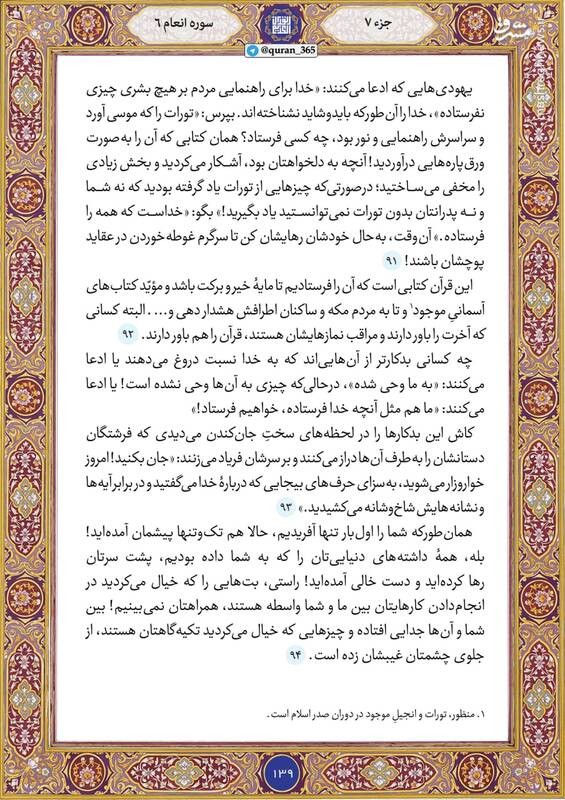 جزء ۷
سوره انعام ۶
@quran_365
یهودی‌هایی که ادعا می‌کنند: «خدا برای راهنمایی مردم بر هیچ بشری چیزی
نفرستاده»، خدا را آن‌طورکه بایدوشاید نشناخته‌اند. بپرس: «تورات را که موسی آورد
و سراسرش راهنمایی و نور بود، چه کسی فرستاد؟ همان کتابی که آن را به‌صورت
ورق‌پاره‌هایی درآوردید! آنچه به دلخواهتان بود، آشکار می‌کردید و بخش زیادی
را مخفی می‌ساختید؛ درصورتی‌که چیزهایی از تورات یاد گرفته بودید که نه شما
و نه پدرانتان بدون تورات نمی‌توانستید یاد بگیرید!» بگو: «خداست که همه را
فرستاده.» آن‌وقت، به‌حال خودشان رهایشان کن تا سرگرم غوطه‌خوردن در عقاید
پوچشان باشند! ۹۱
این قرآن کتابی است که آن را فرستادیم تا مایهٔ خیر و برکت باشد و مؤیّد کتاب‌های
آسمانیِ موجود۱ و تا به مردم مکه و ساکنان اطرافش هشدار دهی و.... البته کسانی
که آخرت را باور دارند و مراقب نمازهایشان هستند، قرآن را هم باور دارند. ۹۲
چه کسانی بدکارتر از آن‌هایی‌اند که به خدا نسبت دروغ می‌دهند یا ادعا
می‌کنند: «به ما وحی شده»، درحالی‌که چیزی به آن‌ها وحی نشده است! یا ادعا
می‌کنند: «ما هم مثل آنچه خدا فرستاده، خواهیم فرستاد!»
کاش این بدکارها را در لحظه‌های سختِ جان‌کندن می‌دیدی که فرشتگان
دستانشان را به‌طرف آن‌ها دراز می‌کنند و بر سرشان فریاد می‌زنند: «جان بکنید! امروز
خواروزار می‌شوید، به‌سزای حرف‌های بیجایی که دربارهٔ خدا می‌گفتید و در برابر آیه‌ها
و نشانه‌هایش شاخ‌وشانه می‌کشیدید.» ۹۳
همان‌طورکه شما را اول‌بار تنها آفریدیم، حالا هم تک‌وتنها پیشمان آمده‌اید!
بله، همهٔ داشته‌های دنیایی‌تان را که به شما داده بودیم، پشت سرتان
رها کرده‌اید و دست خالی آمده‌اید! راستی، بت‌هایی را که خیال می‌کردید در
انجام‌دادن کارهایتان بین ما و شما واسطه هستند، همراهتان نمی‌بینیم! بین
شما و آن‌ها جدایی افتاده و چیزهایی که خیال می‌کردید تکیه‌گاهتان هستند، از
جلوی چشمتان غیبشان زده است. ۹۴
۱. منظور، تورات و انجیلِ موجود در دوران صدر اسلام است.
۱۳۹